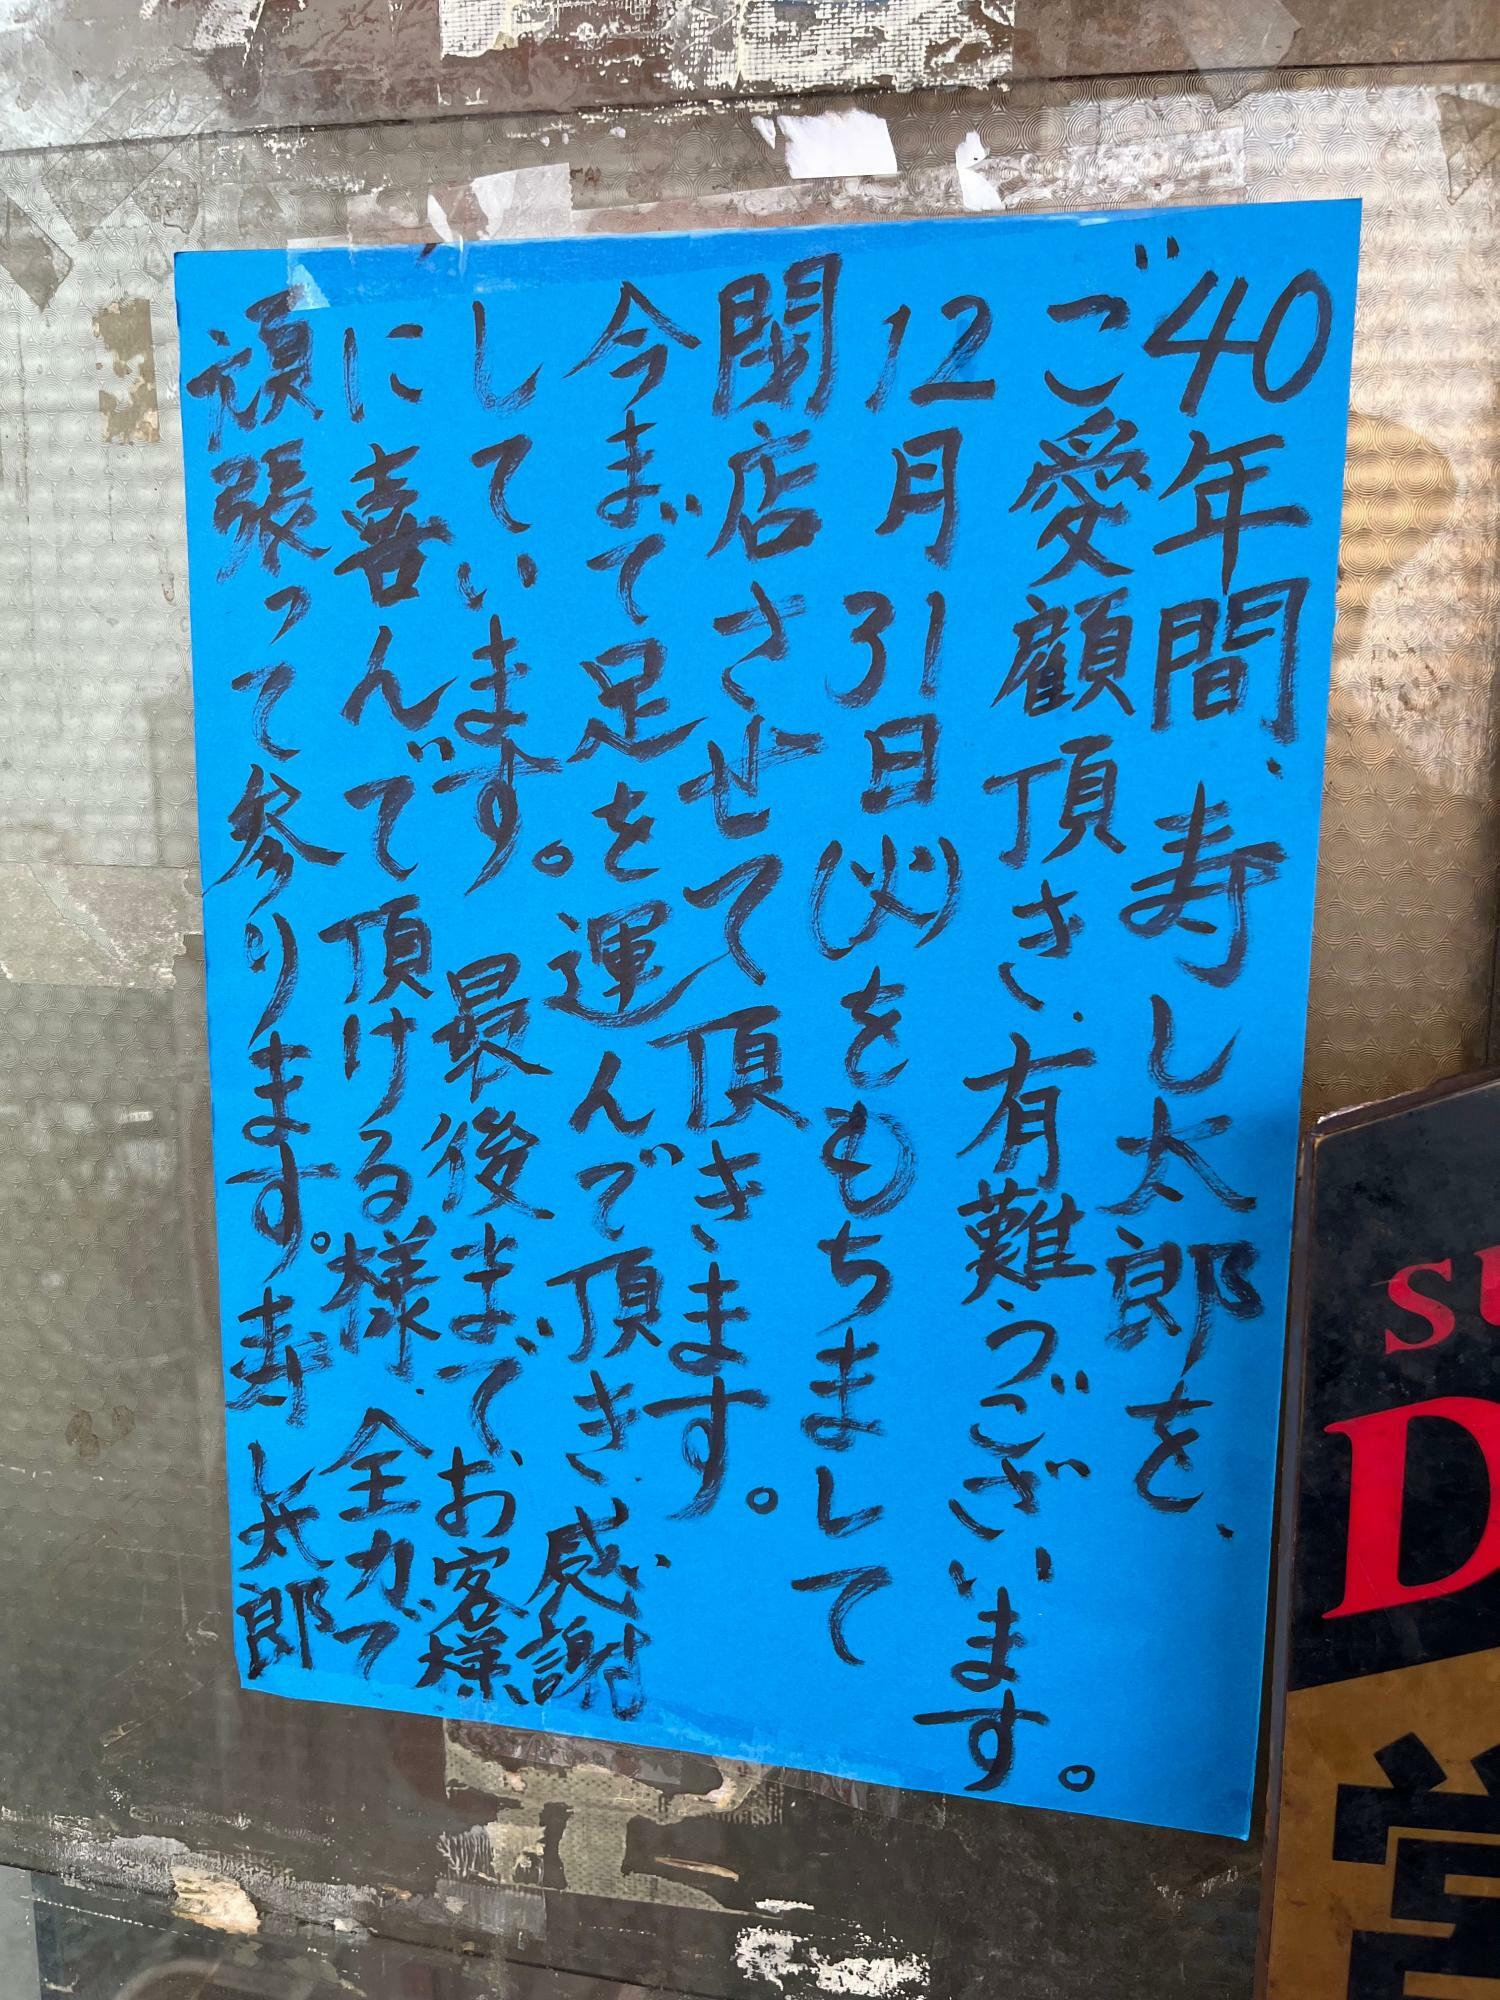 40年間、寿し太郎を、
ご愛顧頂き、有難うございます。
12月31日(火)をもちまして
閉店させて頂きます。
今まで足を運んで頂き感謝
しています。最後まで、お客様
に喜んで頂ける様、全力で
頑張って参ります。寿し太郎
SU
D